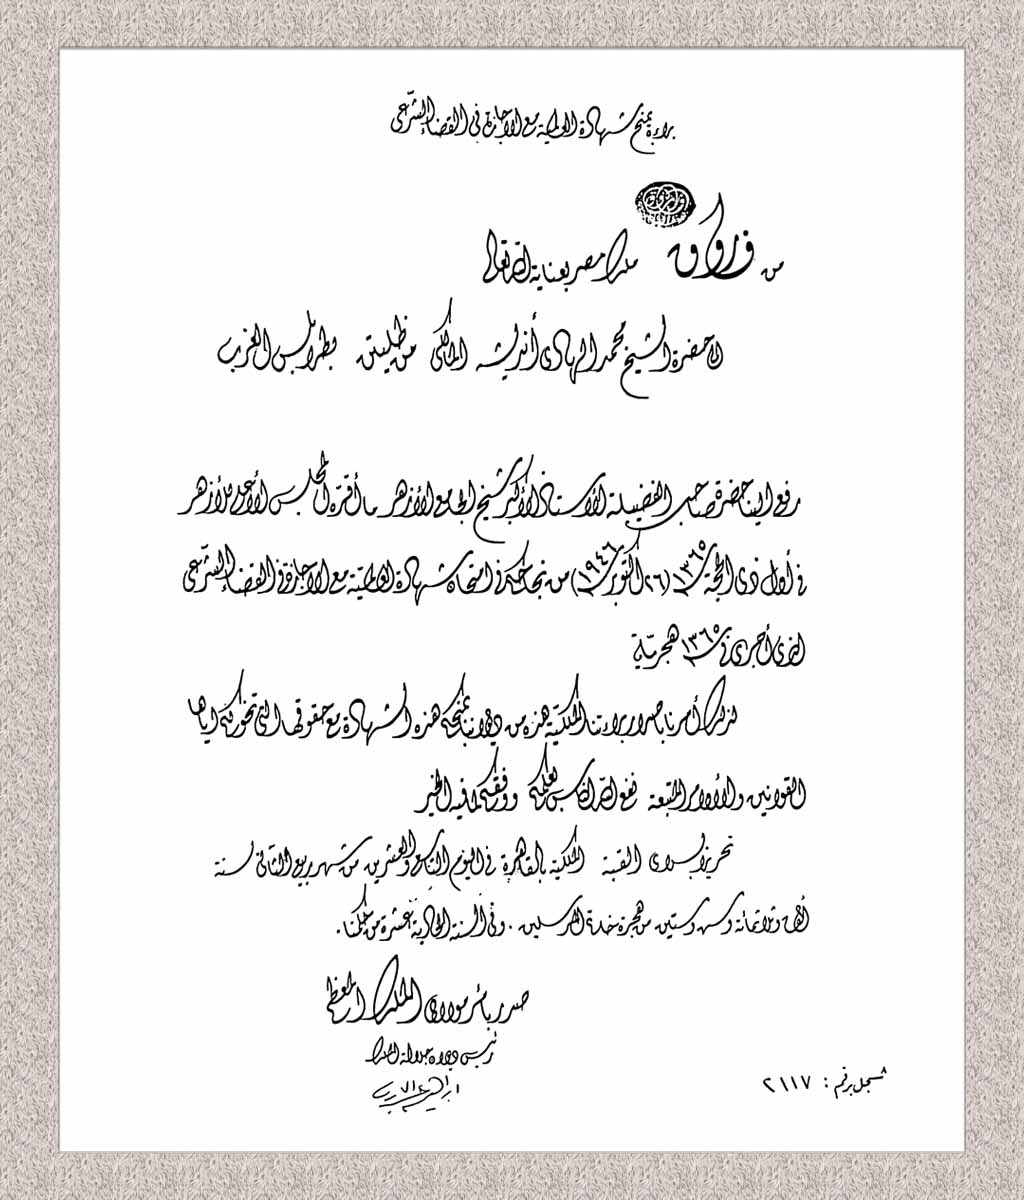 براءة بمنح شهادة العالمية مع الإجازة في القضاء الشرعى
من فاروق ملك مصر بعناية الله تعالى
إلى حضرة الشيخ محمد الهادى أنديشه المالكى من ظليتن بطرابلس الغرب
رفع إلينا حضرة صاحب الفضيلة الأستاذ الأكبر شيخ الجامع الأزهر ما أقره المجلس الأعلى للأزهر
في أول ذى الحجة سنة ١٣٦٥ (٢٦ أكتوبر سنة ١٩٤٦) من نجاحكم في امتحان شهادة العالمية مع الإجازة في القضاء الشرعى
الذى أجرى في سنة ١٣٦٥ هجرية
لذلك أمرنا بإصدار براءتنا الملكية هذه من ديواننا بمنحكم هذه الشهادة مع حقوقها التى تخولكم إياها
القوانين والأوامر المتبعة نفع الله الناس بعلمكم ووفقكم لما فيه الخير
تحريرا بسراى القبة الملكية بالقاهرة في اليوم التاسع والعشرين من شهر ربيع الثانى سنة
ألف وثلاثمائة وست وستين من هجرة خاتم المرسلين . وفى السنة الحادية عشرة من حكمنا .
صدر بأمر مولاى الملك المعظم
رئيس ديوان جلالة الملك
سجل برقم : ٢١١٧